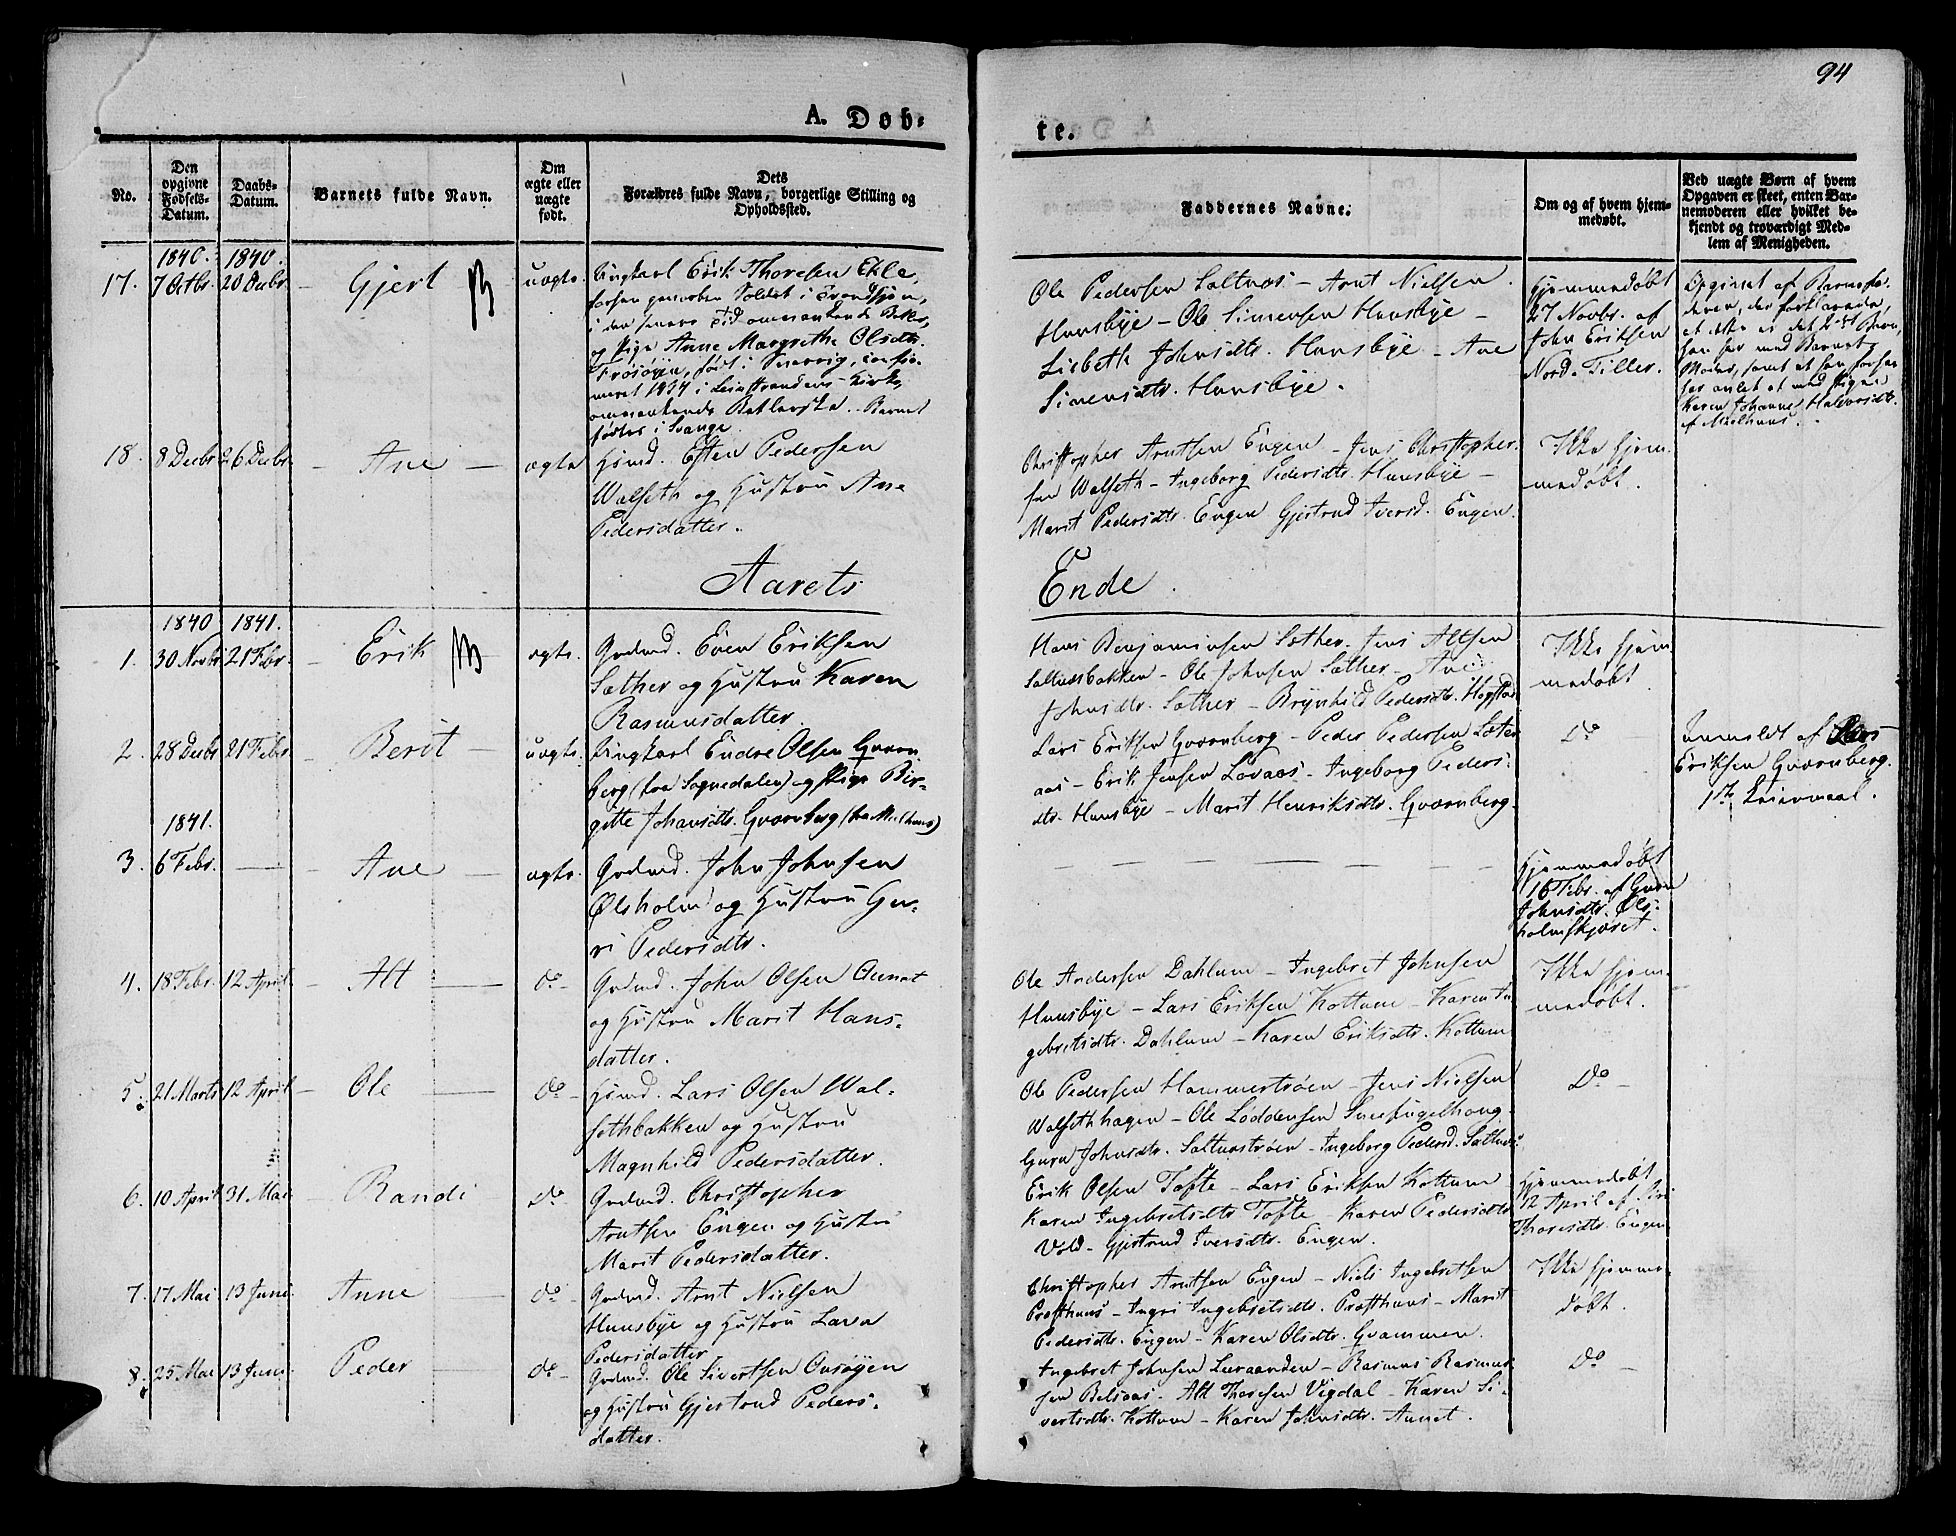 94
A. Døb-
te.
No.
Den opgivne Fødsels-Datum.
Daabs-Datum.
Barnets fulde Navn.
Om ægte eller uægte født.
Dets Forældres fulde Navn, borgerlige Stilling og Opholdssted.
Faddernes Navne.
Om og af hvem hjem-medøbt.
Ved uægte Børn af hvem Opgaven er skeet, enten Bar-nemoderen eller hvilket be-kjendt og troværdigt Med-lem af Menigheden.
1840. 1840.
17. 7 Octbr. 20 Decbr. Gjert uægte. Ungkarl Erik Thoresen Ekle,
forhen geworben Soldat i Trondhjem,
i den senere Tid omvankende
og Pige Anne Margrethe Olsdtr.
Frosøyen, født i Sverrig, confir-
meret 1834 i Leinstrandens Kirke,
omvankende Betlerske. Barnet
fødtes i Svange.
Ole Pedersen Saltnæs - Arnt Nielsen
Huusbye - Ole Simensen Huusbye -
Lisbeth Johnsdtr. Huusbye - Ane
Simensdtr. Huusbye.
Hjemmedøbt
27 Novbr. af
John Eriksen
Nord-Tiller.
Opgivet af Barnefa-
deren, der forklarede,
at dette er det 2det Barn,
han har med Barnets
Moder, samt at han forhen
har avlet et med Pigen
Karen Johanne Halvorsdtr.
af Meelhuus.
18. 8 Decbr. 26 Decbr. - Ane - ægte Huusmd. Esten Pedersen
Walseth og Hustru Ane
Pedersdatter.
Christopher Arntsen Engen - Jens Christopher-
sen Walseth - Ingeborg Pedersdtr. Huusbye -
Marit Pedersdtr. Engen Gjertrud Iversd. Engen.
Ikke hjem-
medøbt.
Aarets Ende.
1840 1841.
1. 30 Novbr. 21 Febr. - Erik ægte. Grdmd. Even Eriksen
Sæther og Hustru Karen
Rasmusdatter.
Hans Benjaminsen Sæther. Jens Altsen
Saltnæsbakken - Ole Johnsen Sæther - Ane
Johnsdtr. Sæther - Brynhild Pedersdtr. Hogstad
Ikke hjem-
medøbt.
2. 28 Decbr. 21 Febr. - Berit - uægte. Ungkarl Endre Olsen Gvarn-
berg (fra Sognedalen) og Pige Bir-
gitte Johansdtr. Gvarnberg (fra Meelhuus)
Lars Eriksen Gvarnberg - Peder Pedersen Sæter-
aas - Erik Jensen Lovaas - Ingeborg Peders-
dtr. Huusbye - Marit Henriksdtr. Gvarnberg.
Do
Anmeldt af Lars
Eriksen Gvarnberg.
1ste Leiermaal.
1841.
3. 6 Febr. - Ane - ægte. Grdmd. John Johnsen
Ølsholm og Hustru Gu-
ri Pedersdtr.
Hjemmedøbt
16 Febr. af Guru
Johnsdtr. Øls-
holmskjæret.
4. 18 Febr. 12 April. - Alt - do - Grdmd. John Olsen Aunet
og Hustru Marit Hans-
datter.
Ole Andersen Dahlum - Ingebret Johnsen
Huusbye - Lars Eriksen Kottum - Karen In-
gebretsdtr. Dahlum - Karen Eriksdtr. Kottum
Ikke hjem-
medøbt.
5. 21 Marts 12 April - Ole - do - Huusmd. Lars Olsen Wal-
sethbakken og Hustru
Magnhild Pedersdatter.
Ole Pedersen Hammertrøen - Jens Nielsen
Walsethhagen - Ole Loddensen Sneefugelhoug -
Guru Johnsdtr. Saltnæstrøen - Ingeborg Pedersd. Saltnæs
Do -
6. 10 April 31 Mai Randi do - Grdmd. Christopher
Arntsen Engen og Hustru
Marit Pedersdatter.
Erik Olsen Tofte - Lars Eriksen Kottum
Karen Ingebretsdtr. Tofte - Karen Pedersdtr.
Vold - Gjertrud Iversdtr. Engen.
Hjemmedøbt
12 April af
Thoresdtr. Engen
7. 17 Mai 13 Juni. Anne - do - Grdmd. Arnt Nielsen
Huusbye og Hustru Lava
Pedersdatter
Christopher Arntsen Engen - Niels Ingebretsen
Præsthuus - Ingri Ingebretsdtr. Præsthuus - Marit
Pedersdtr. Engen - Karen Olsdtr. Gvammen.
Ikke hjemme-
døbt.
8. 25 Mai 13 Juni. Peder - do - Grdmd. Ole Sivertsen Onsøyen
og Hustru Gjertrud Peders-
datter.
Ingebret Johnsen Luraanden - Rasmus Rasmus-
sen Belsaas - Alt Thoresen Vigdal - Karen Si-
vertsdtr. Kottum - Karen Johnsdtr. Aunet.
Do -